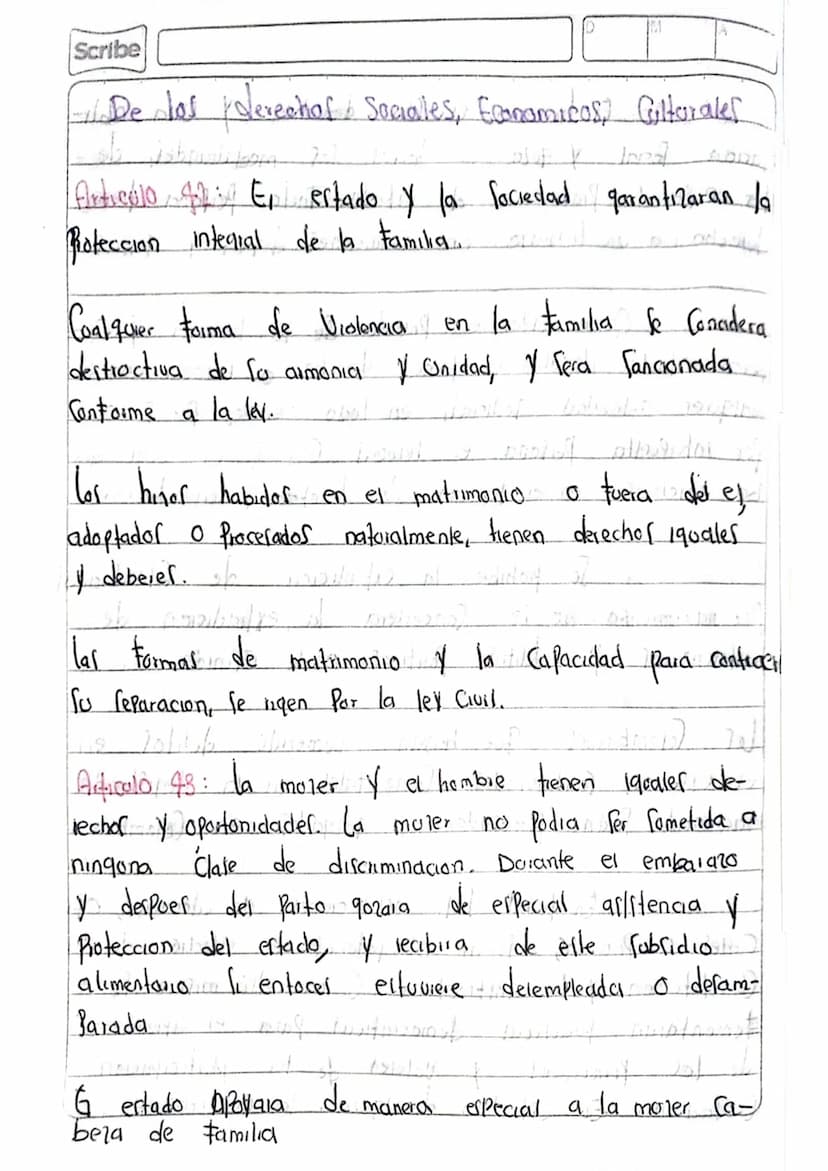 Scribe
D M A
De los derechos Sociales, Economicos, Culturales
Articulo 42: El estado y la Sociedad garantizaran la
Proteccion integral de la familia.
Cualquier forma de Violencia en la familia se Considera
destructiva de su armonia y Unidad, y Sera Sancionada
Conforme a la ley.
los hijos habidos en el matrimonio o fuera del el,
adoptados o Procesados naturalmente, tienen derechos iguales
y deberes.
las formas de matrimonio y la Capacidad para contraer
Su Separacion, Se rigen Por la ley Civil.
Articulo 43: la mujer y el hombre tienen iguales de-
rechos y oportunidades. La mujer no Podra Ser Sometida a
ninguna Clase de discriminacion. Durante el embarazo
y despues del Parto gozara de especial asistencia y
Proteccion del estado, y recibira de este Subsidio
alimentario Si entoces estuviere desempleada o desam-
Parada
El estado apoyara de manera especial a la mujer Ca-
beza de familia